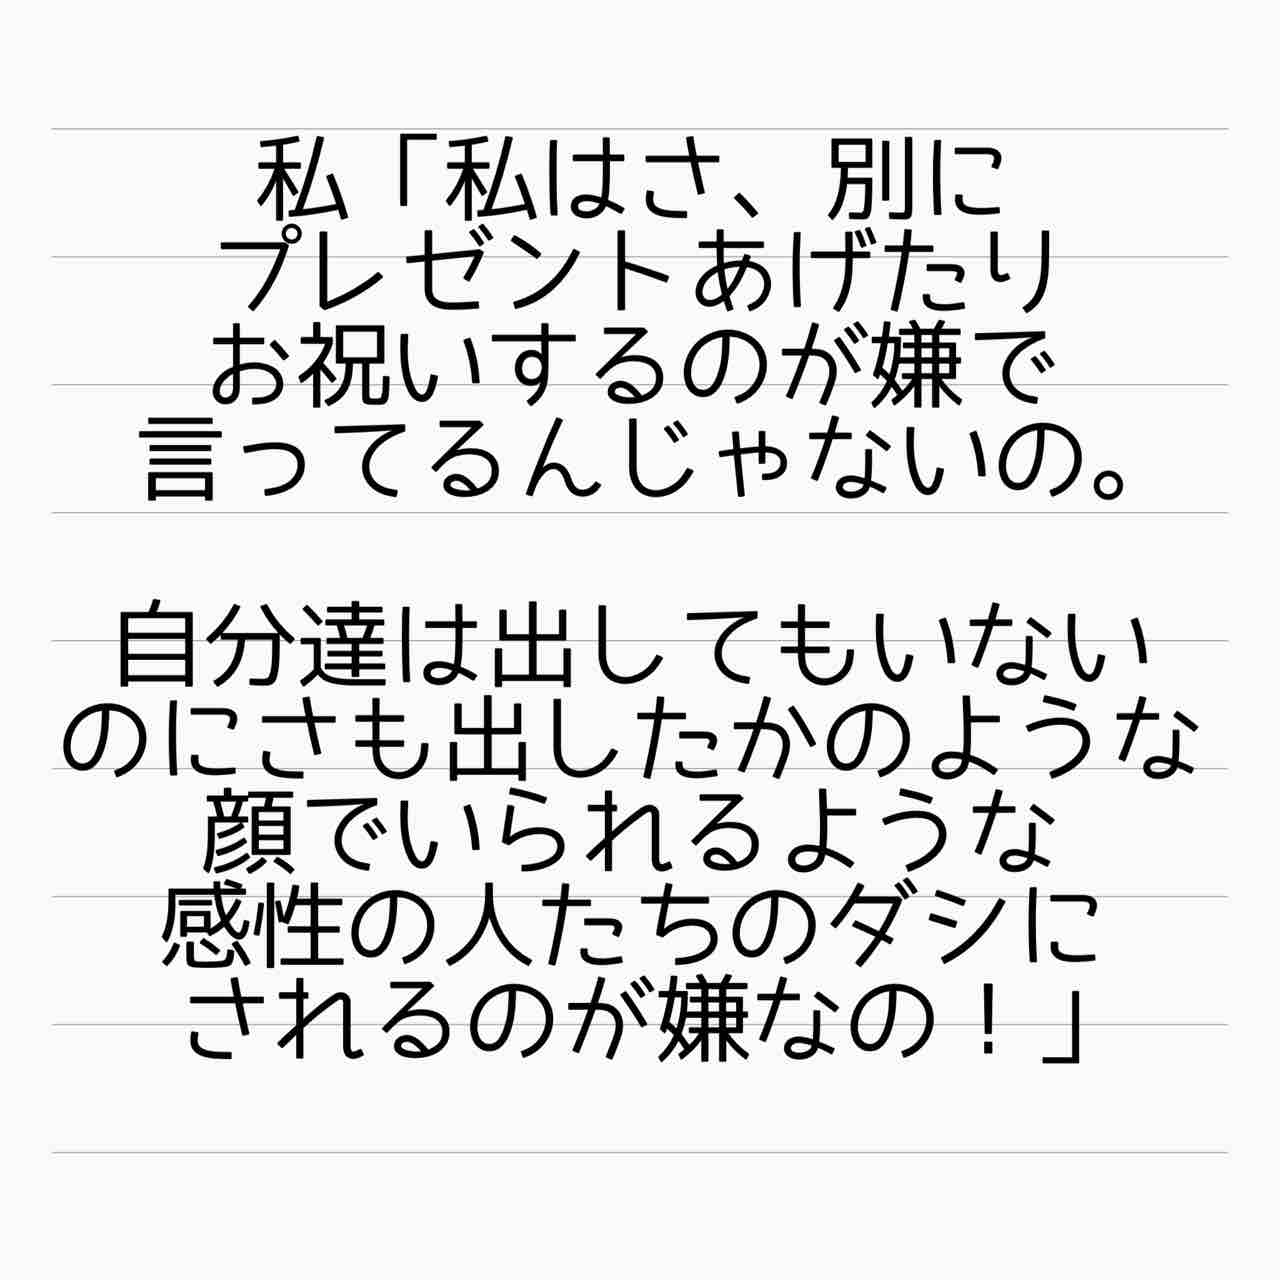 私「私はさ、別に
プレゼントあげたり
お祝いするのが嫌で
言ってるんじゃないの。
自分達は出してもいない
のにさも出したかのような
顔でいられるような
感性の人たちのダシに
されるのが嫌なの！」